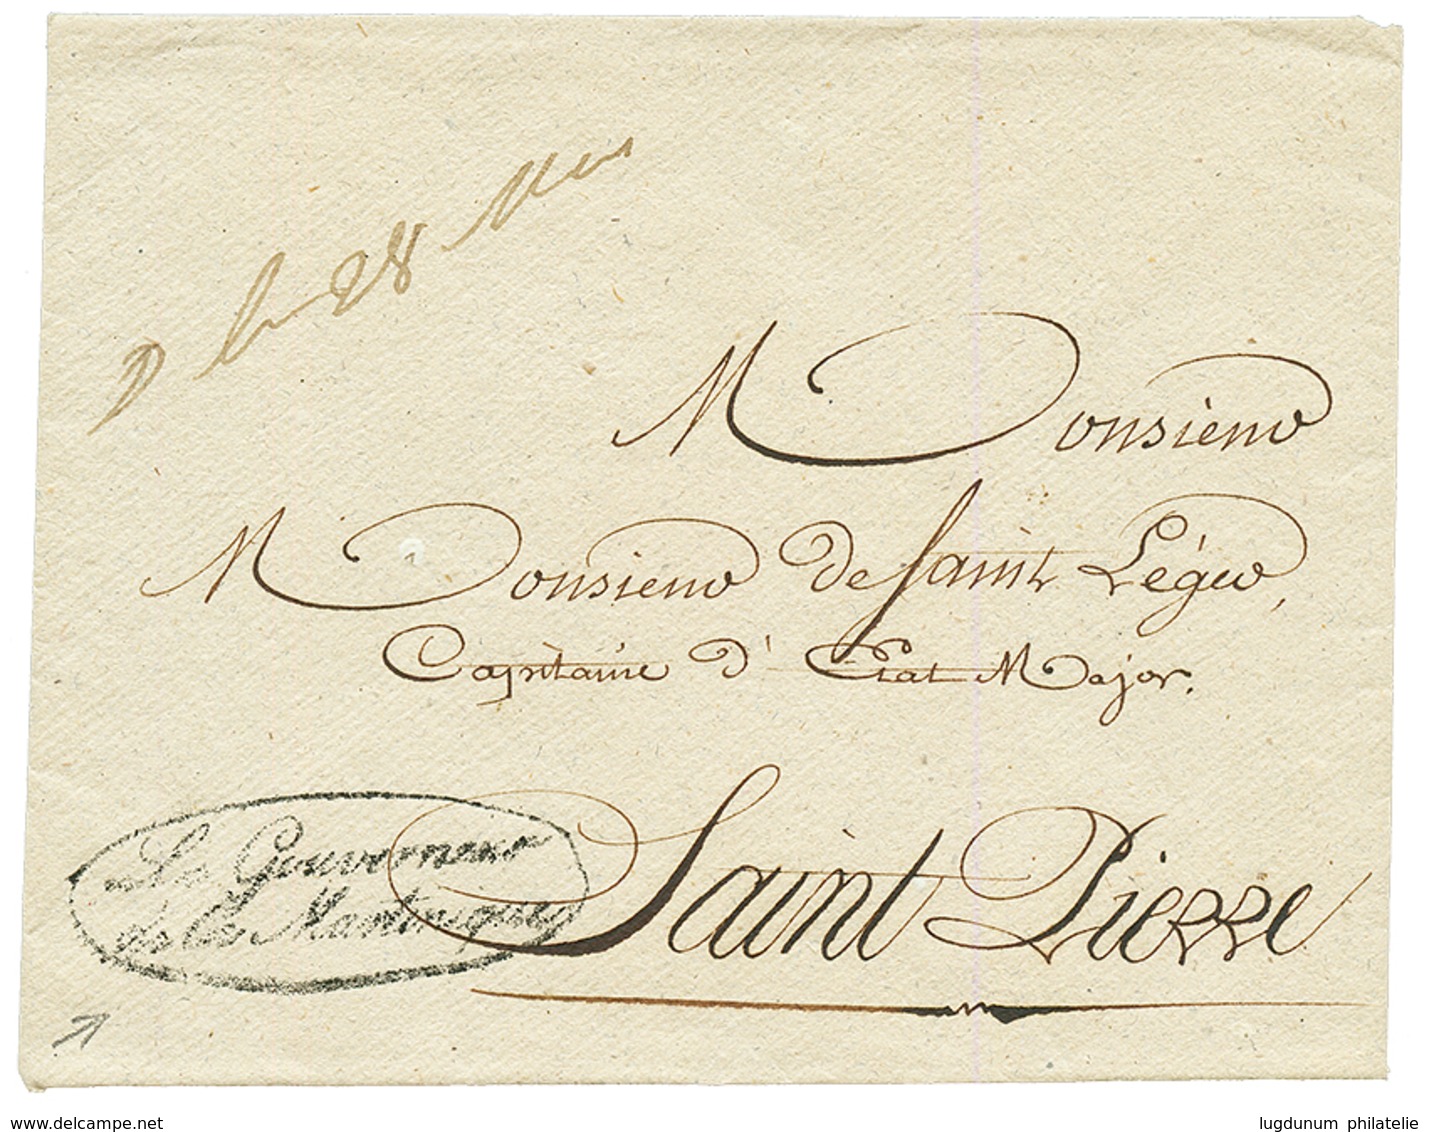 le 28 Mars
Monsieur
Monsieur de Saint Léger,
Capitaine d'Etat Major.
Le Gouverneur
de la Martinique
Saint Pierre
www.delcampe.net
lugdunum philatelie